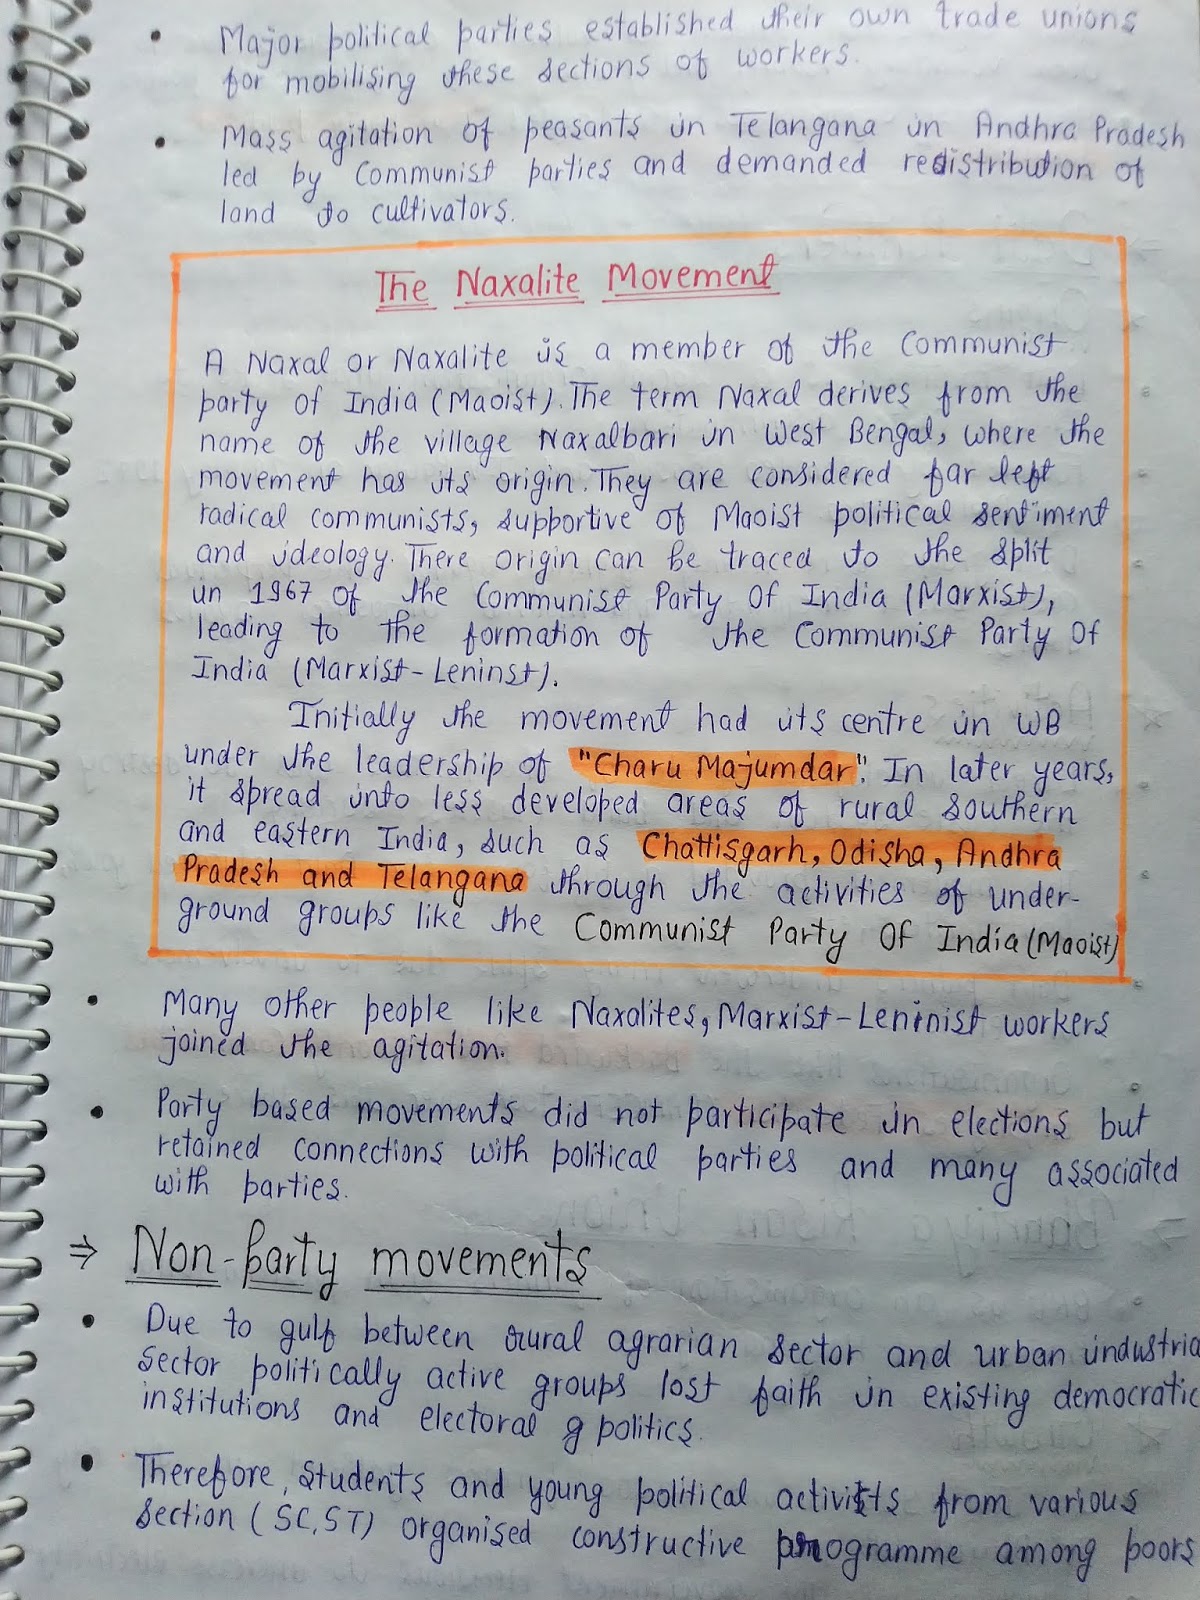 • Major political parties established their own trade unions
for mobilising these sections of workers.
• Mass agitation of peasants in Telangana in Andhra Pradesh
led by Communist parties and demanded redistribution of
land to cultivators.
The Naxalite Movement
A Naxal or Naxalite is a member of the Communist
party of India (Maoist). The term Naxal derives from the
name of the village Naxalbari in West Bengal, where the
movement has its origin. They are considered far left
radical communists, supportive of Maoist political sentiment
and ideology. There origin can be traced to the split
in 1967 of the Communist Party Of India (Marxist),
leading to the formation of the Communist Party Of
India (Marxist-Leninst).
Initially the movement had its centre in WB
under the leadership of "Charu Majumdar". In later years,
it spread into less developed areas of rural southern
and eastern India, such as Chattisgarh, Odisha, Andhra
Pradesh and Telangana through the activities of under-
ground groups like the Communist Party Of India (Maoist)
• Many other people like Naxalites, Marxist-Leninist workers
joined the agitation.
• Party based movements did not participate in elections but
retained connections with political parties and many associated
with parties.
⇒ Non-party movements
• Due to gulf between rural agrarian sector and urban industria
sector politically active groups lost faith in existing democratic
institutions and electoral politics.
• Therefore, students and young political activists from various
section (SC, ST) organised constructive programme among poors